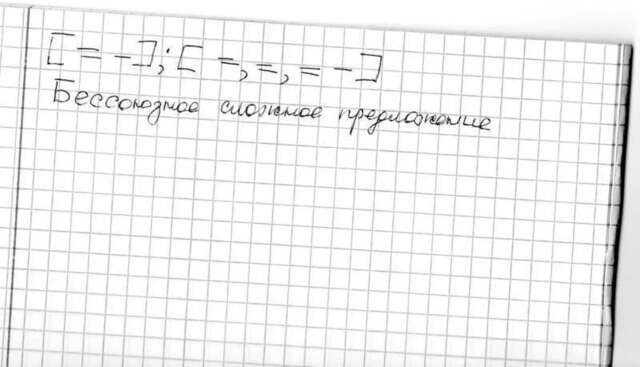 [= -]; [ =, =, = -]
Бессоюзное сложное предложение